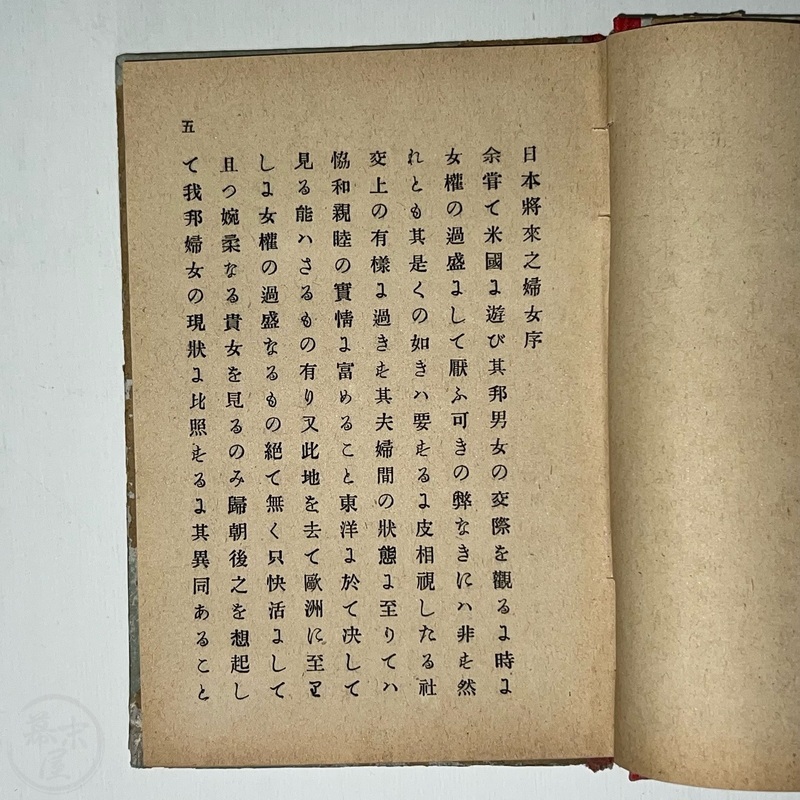 日本將來之婦女序
余甞て米國に遊び其邦男女の交際を觀るに時に
女權の過盛にして厭ふ可きの弊なきにハ非ず然
れとも其是くの如きハ要するに皮相視したる社
交上の有樣に過きず其夫婦間の狀態に至りてハ
恊和親睦の實情に富めること東洋に於て决して
見る能ハさるもの有り又此地を去て歐洲に至り
しに女權の過盛なるもの絕て無く只快活にして
且つ婉柔なる貴女を見るのみ歸朝後之を想起し
て我邦婦女の現狀に比照するに其異同あること
五
幕末屋